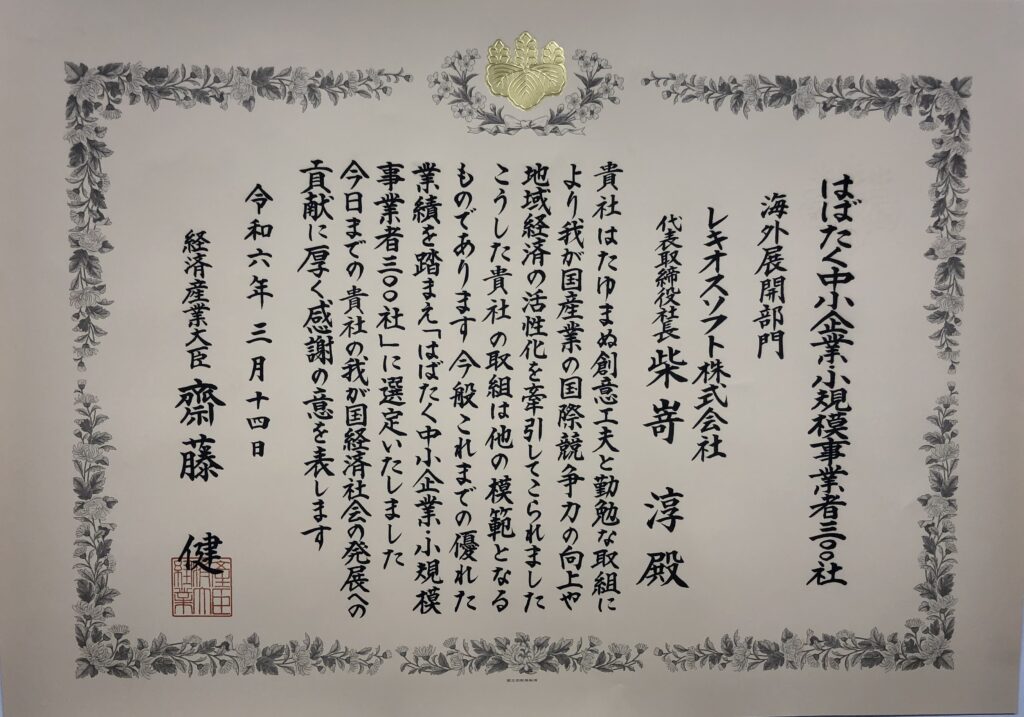 はばたく中小企業・小規模事業者三〇〇社
海外展開部門
レキオスソフト株式会社
代表取締役社長 柴嵜 淳 殿
貴社はたゆまぬ創意工夫と勤勉な取組に
より我が国産業の国際競争力の向上や
地域経済の活性化を牽引してこられました
こうした貴社の取組は他の模範となる
ものであります 今般これまでの優れた
業績を踏まえ「はばたく中小企業・小規模
事業者三〇〇社」に選定いたしました
今日までの貴社の我が国経済社会の発展への
貢献に厚く感謝の意を表します
令和六年三月十四日
経済産業大臣 齋藤 健